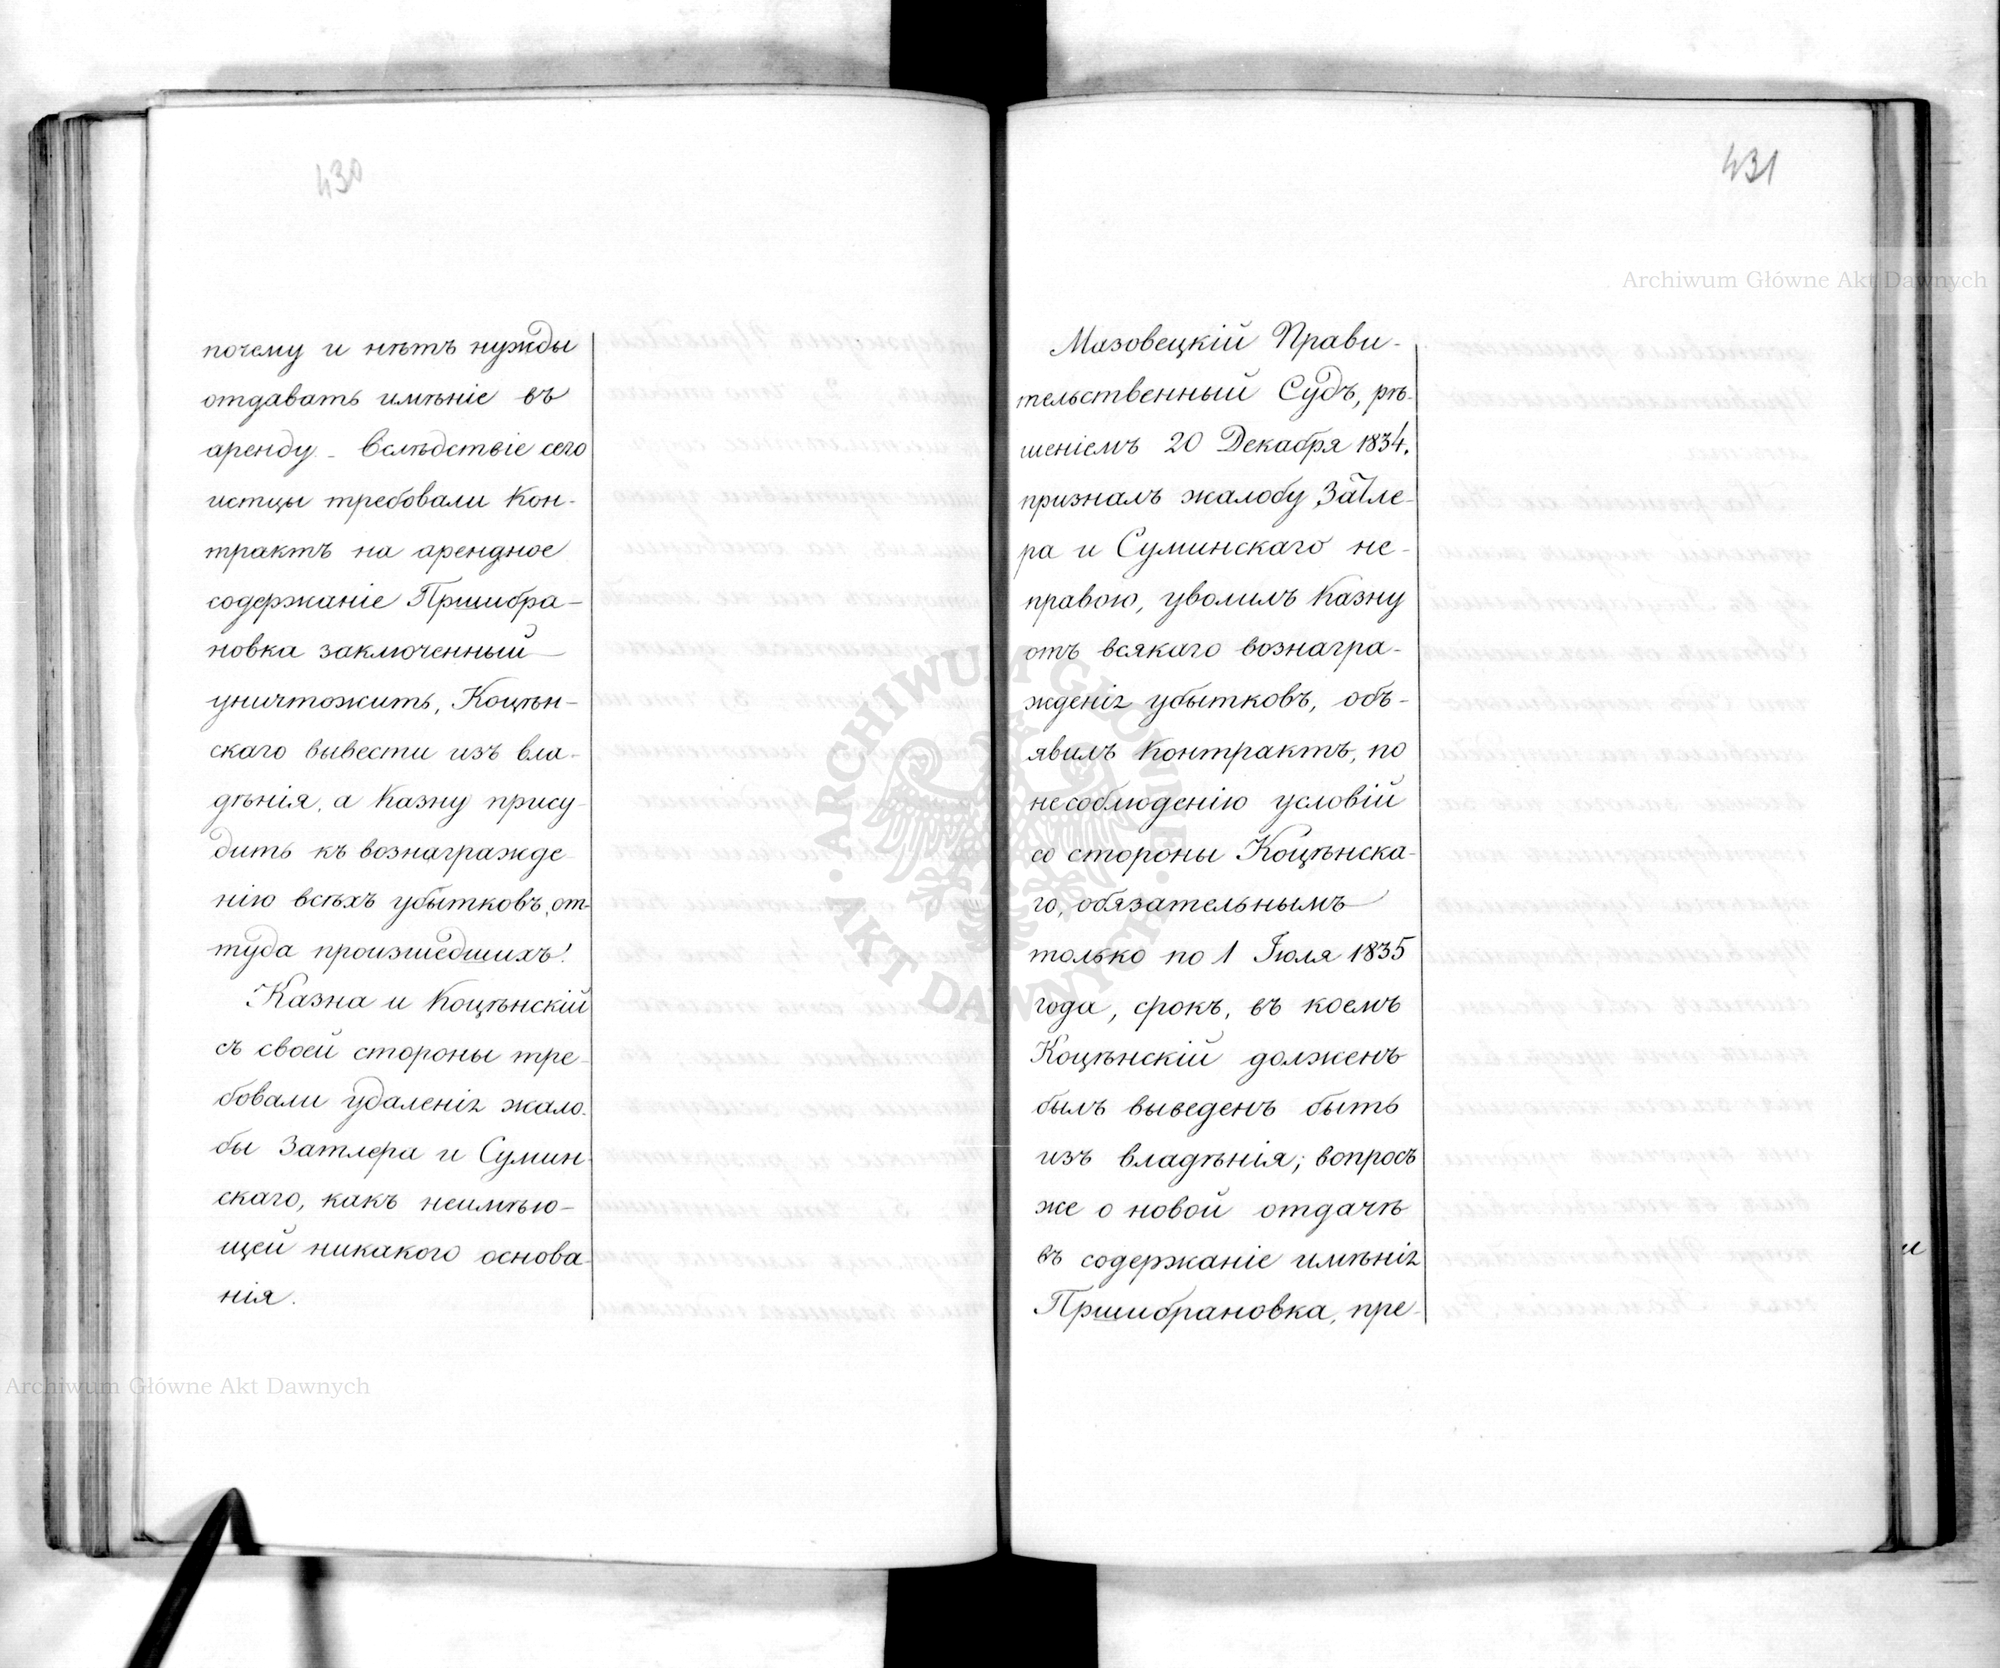 430
почему и нѣтъ нужды
отдавать имѣніе въ
аренду. Вслѣдствіе сего
истцы требовали Кон-
трактъ на арендное
содержаніе Пршибра-
новка заключенный
уничтожить, Коцѣн-
скаго вывести изъ вла-
дѣнія, а Казну прису-
дить къ вознагражде-
нію всѣхъ убытковъ, от-
туда произшедшихъ.
Казна и Коцѣнскій
съ своей стороны тре-
бовали удаленія жало-
бы Затлера и Сумин-
скаго, какъ неимѣю-
щей никакого основа-
нія.
431
Мазовецкій Прави-
тельственный Судъ, рѣ-
шеніемъ 20 Декабря 1834.
призналъ жалобу Затле-
ра и Суминскаго не-
правою, уволилъ Казну
отъ всякаго вознагра-
жденія убытковъ, объ-
явилъ Контрактъ, по
несоблюденію условій
со стороны Коцѣнска-
го, обязательнымъ
только по 1 Іюля 1835
года, срокъ, въ коемъ
Коцѣнскій долженъ
былъ выведенъ быть
изъ владѣнія; вопросъ
же о новой отдачѣ
въ содержаніе имѣнія
Пршибрановка, пре-
и
Archiwum Główne Akt Dawnych
ARCHIWUM GŁÓWNE AKT DAWNYCH
Archiwum Główne Akt Dawnych